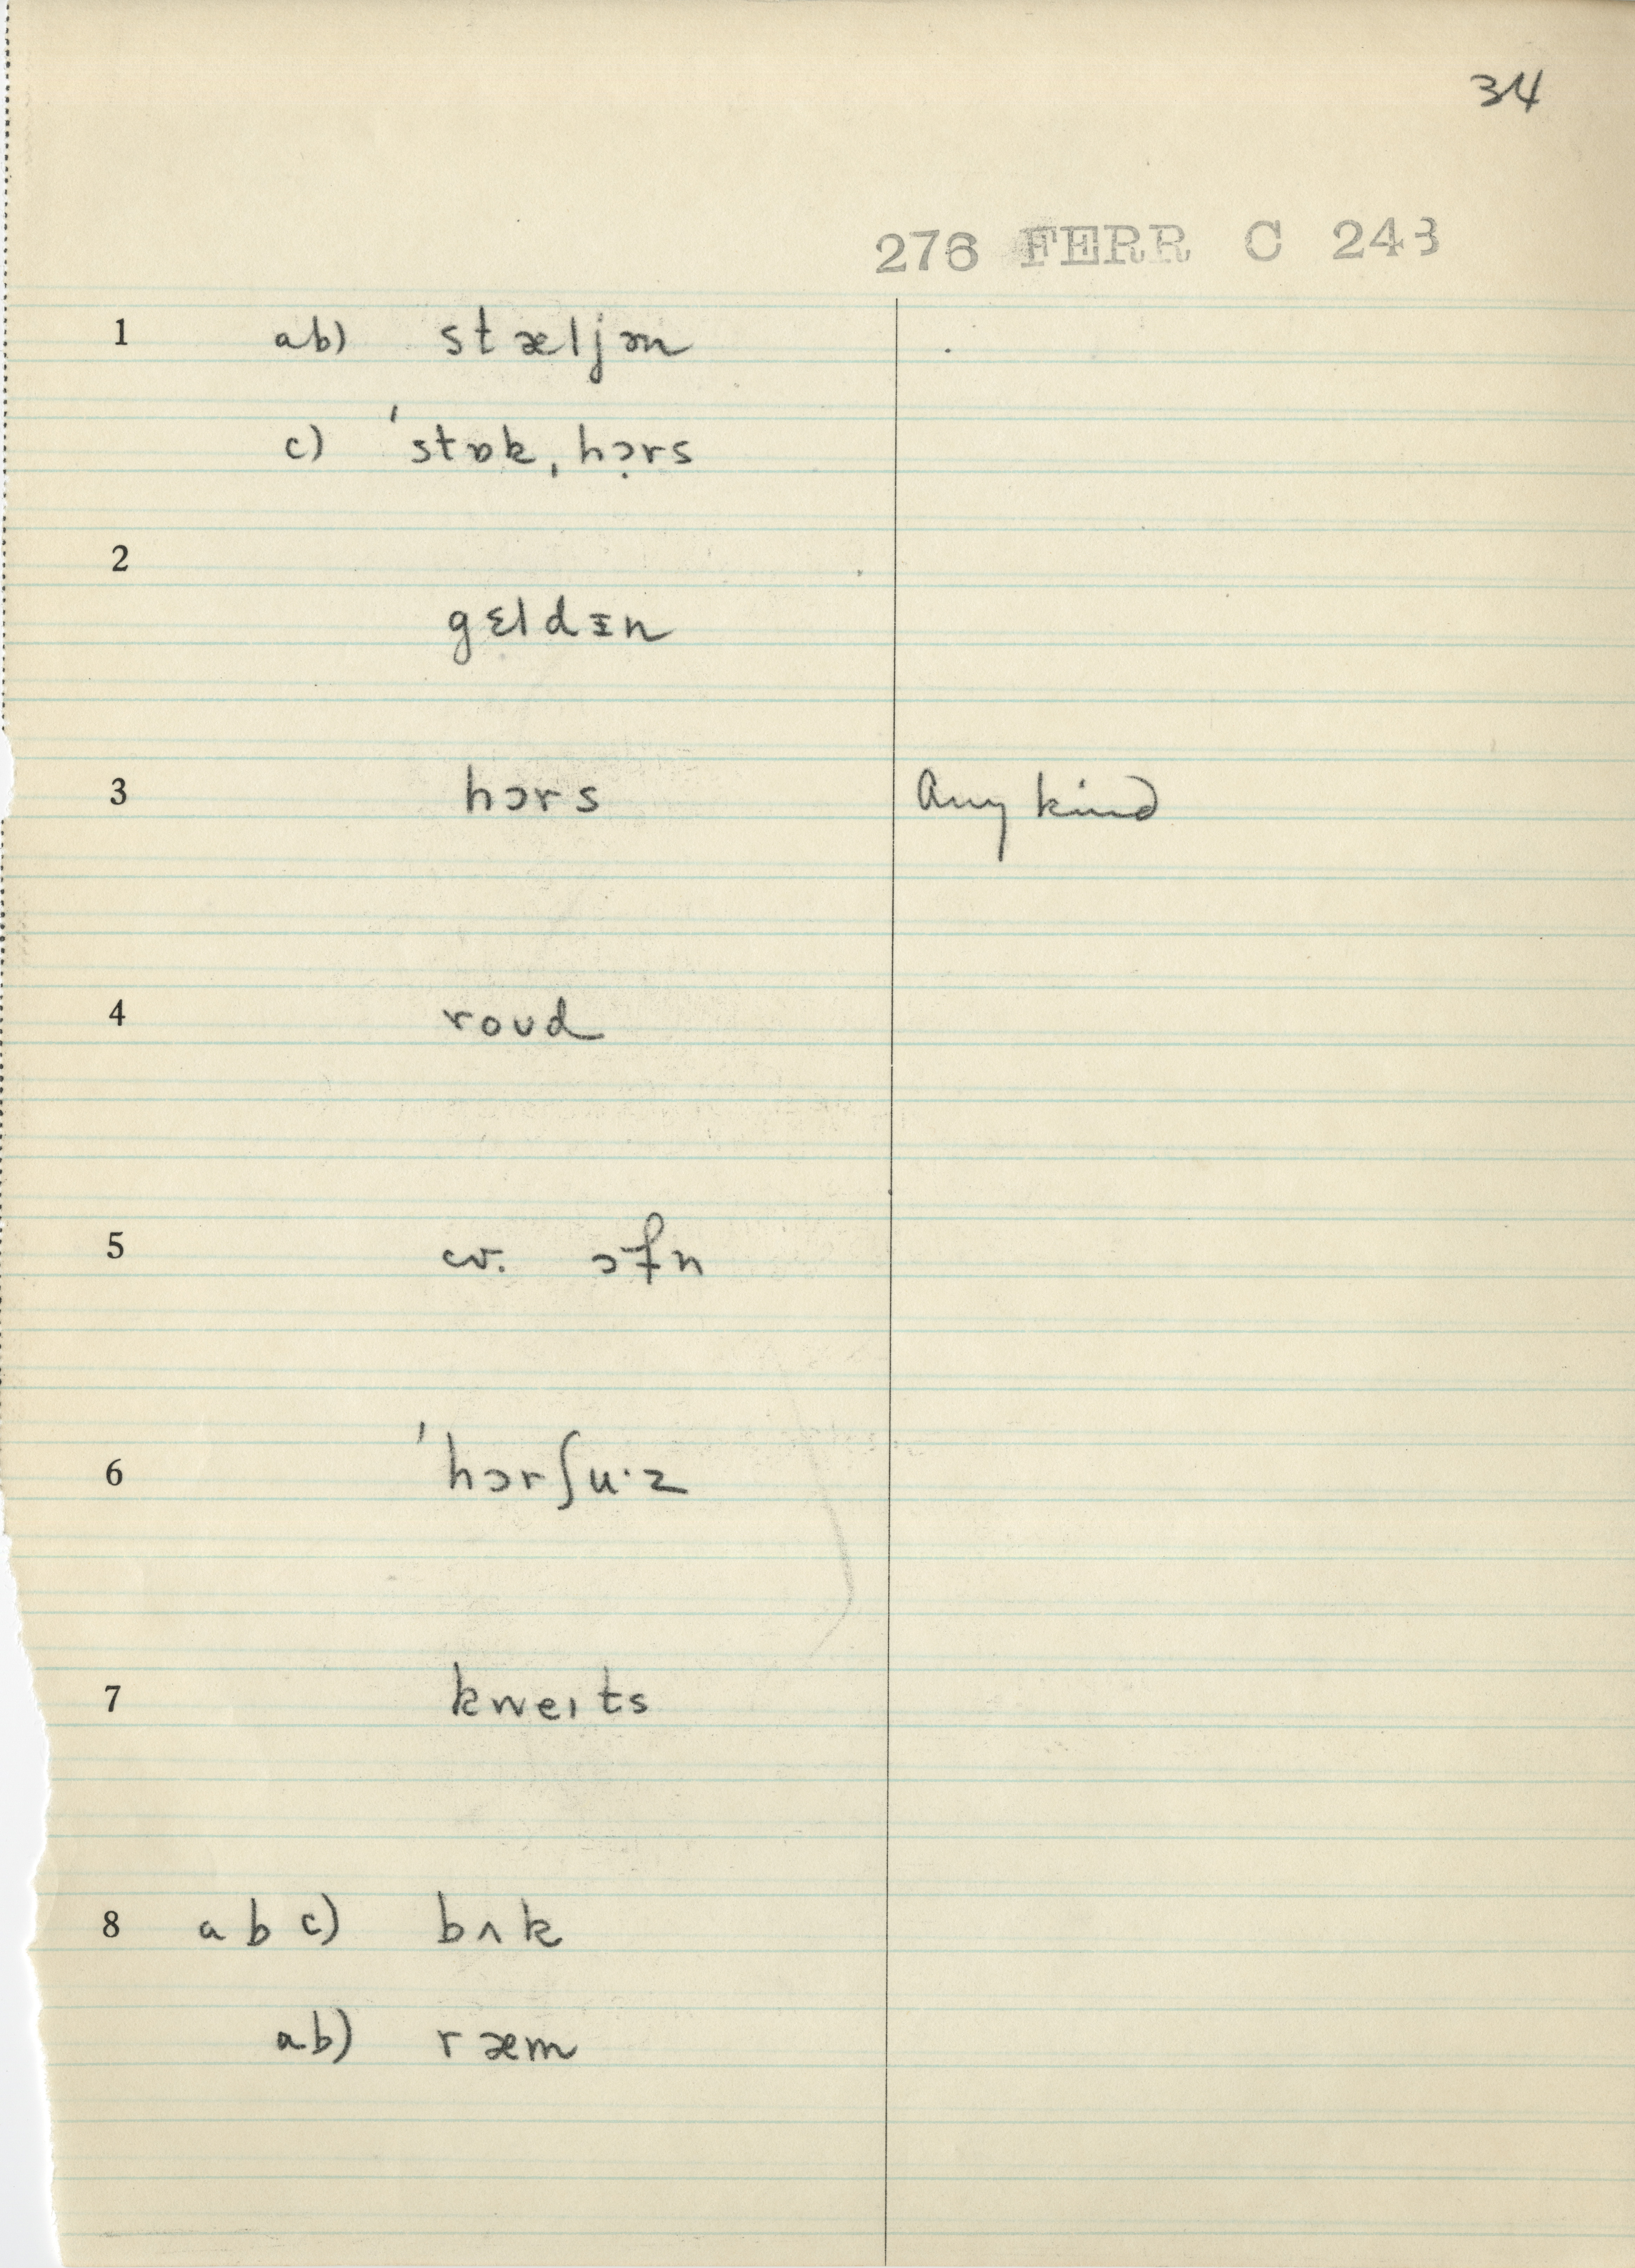 34
276 FERR C 243
1 ab) stæljən
c) ˈstɒkˌhɔ̣rs
2
gɛldᵻn
3 hɔrs Any kind
4 roʊd
5 cv. ɔfn
6 ˈhɔrʃu·z
7 kweɪts
8 a b c) bʌk
ab) ræm